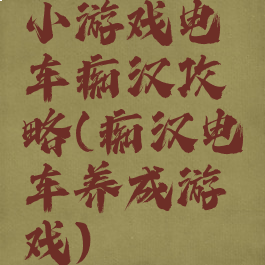 小游戏电
车痴汉攻
略(痴汉电
车养成游
戏)